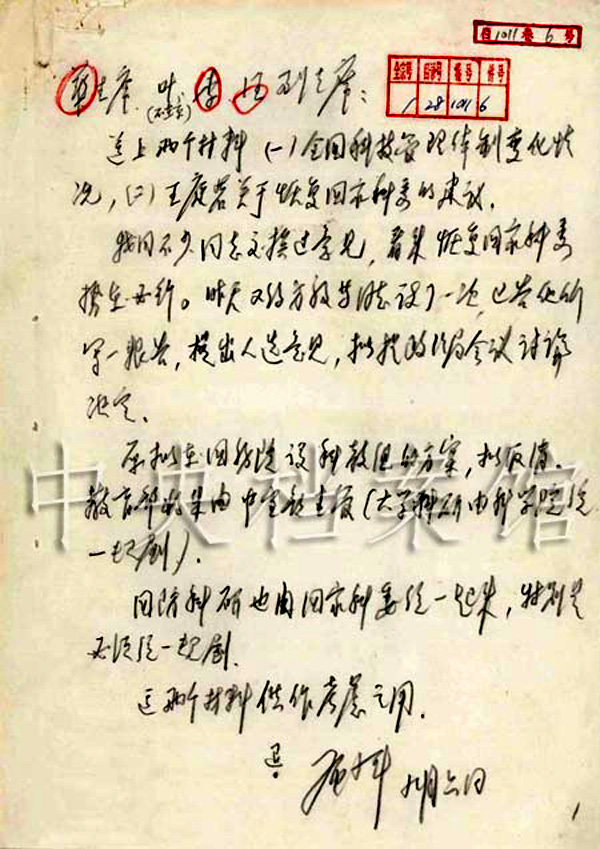 自1011卷6号
全宗号 目录号 卷号 件号
1 28 1011 6
华主席、叶、李、汪副主席:
(不在京)
送上两个材料(一)全国科技管理体制变化情
况,(二)关于恢复国家科委的建议。
我同不少同志交换过意见,看来恢复国家科委
势在必行。昨天又约方毅等同志谈了一次,已告他们
写一报告,提出人选意见,拟提政治局会议讨论
决定。
原拟在国务院设科教组的方案,拟取消。
教育部将来由中宣部主管(大学科研由科学院统
一规划)。
国防科研也由国家科委统一起来,特别是
必须统一规划。
这两个材料供作考虑之用。
邓小平 九月六日
1
中央档案馆